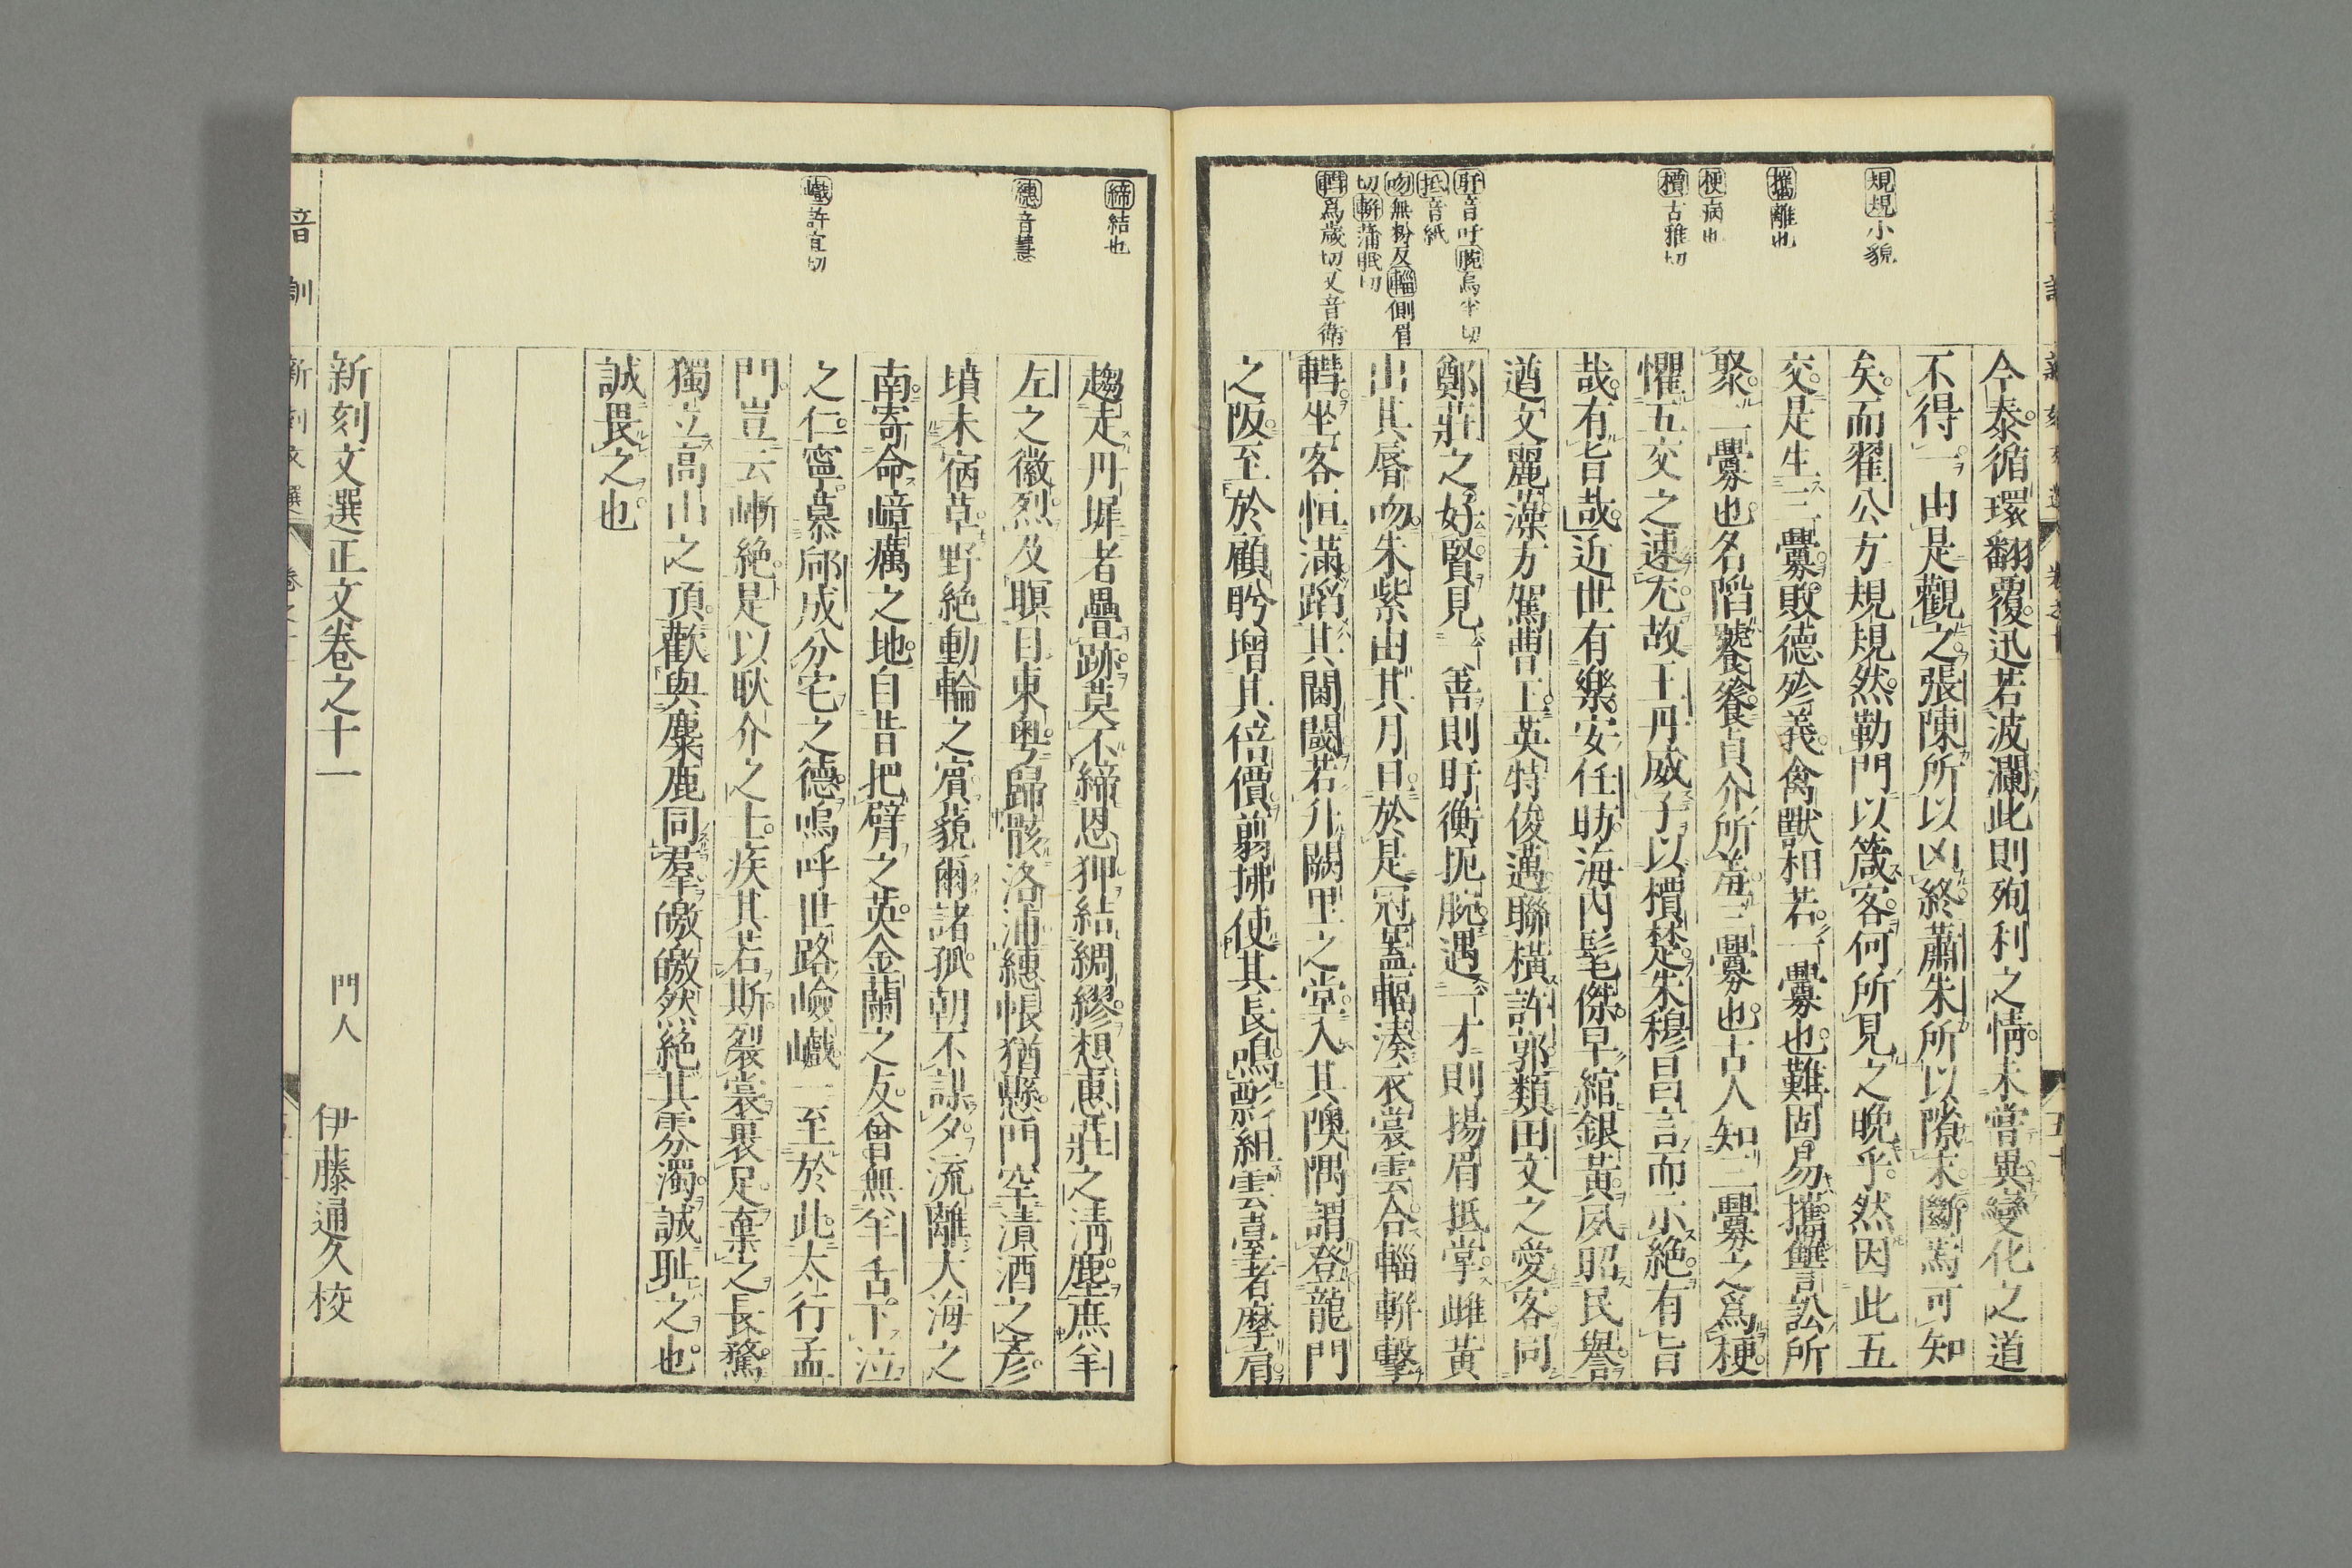 規規小貌
攜離也
梗病也
檟古雅切
盱音吁腕烏半切
抵音紙
吻無粉反輜側眉
切軿蒲眠切
轊爲歲切又音衛
今泰循環翻覆迅若波瀾此則殉利之情未嘗異變化之道
不得一由是觀之張陳所以凶終蕭朱所以隙末斷焉可知
矣而翟公方規規然勒門以箴客何所見之晚乎然因此五
交是生三釁敗德殄義禽獸相若一釁也難固易攜讎訟所
聚二釁也名陷饕餮貞介所羞三釁也古人知三釁之爲梗
懼五交之速尤故王丹威子以檟楚朱穆昌言而示絶有旨
哉有旨哉近世有樂安任昉海内髦傑早綰銀黃夙昭民譽
遒文麗藻方駕曹王英特俊邁聯橫許郭類田文之愛客同
鄭莊之好賢見一善則盱衡扼腕遇一才則揚眉抵掌雌黃
出其脣吻朱紫由其月旦於是冠蓋輻湊衣裳雲合輜軿擊
轊坐客恒滿蹈其閫閾若升闕里之堂入其隩隅謂登龍門
之阪至於顧眄增其倍價翦拂使其長鳴彯組雲臺者摩肩
締結也
繐音慧
巇許宜切
趨走丹墀者疊跡莫不締恩狎結綢繆想惠莊之清塵庶羊
左之徽烈及瞑目東粤歸骸洛浦繐帳猶懸門罕漬酒之彥
墳未宿草野絶動輪之賓藐爾諸孤朝不謀夕流離大海之
南寄命嶂癘之地自昔把臂之英金蘭之友曾無羊舌下泣
之仁寧慕郈成分宅之德嗚呼世路嶮巇一至於此太行孟
門豈云嶄絶是以耿介之士疾其若斯裂裳裹足棄之長騖
獨立高山之頂歡與麋鹿同羣皦皦然絶其雰濁誠耻之也
誠畏之也
新刻文選正文卷之十一
門人 伊藤通久校
音訓 新刻文選